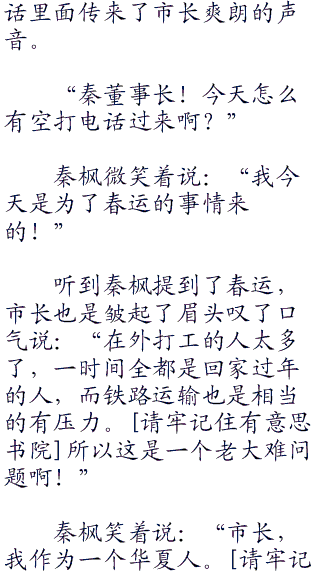 话里面传来了市长爽朗的声
音。
“秦董事长！今天怎么
有空打电话过来啊？”
秦枫微笑着说：“我今
天是为了春运的事情来
的！”
听到秦枫提到了春运，
市长也是皱起了眉头叹了口
气说：“在外打工的人太多
了，一时间全都是回家过年
的人，而铁路运输也是相当
的有压力。[请牢记住有意思
书院]所以这是一个老大难问
题啊！”
秦枫笑着说：“市长，
我作为一个华夏人。[请牢记